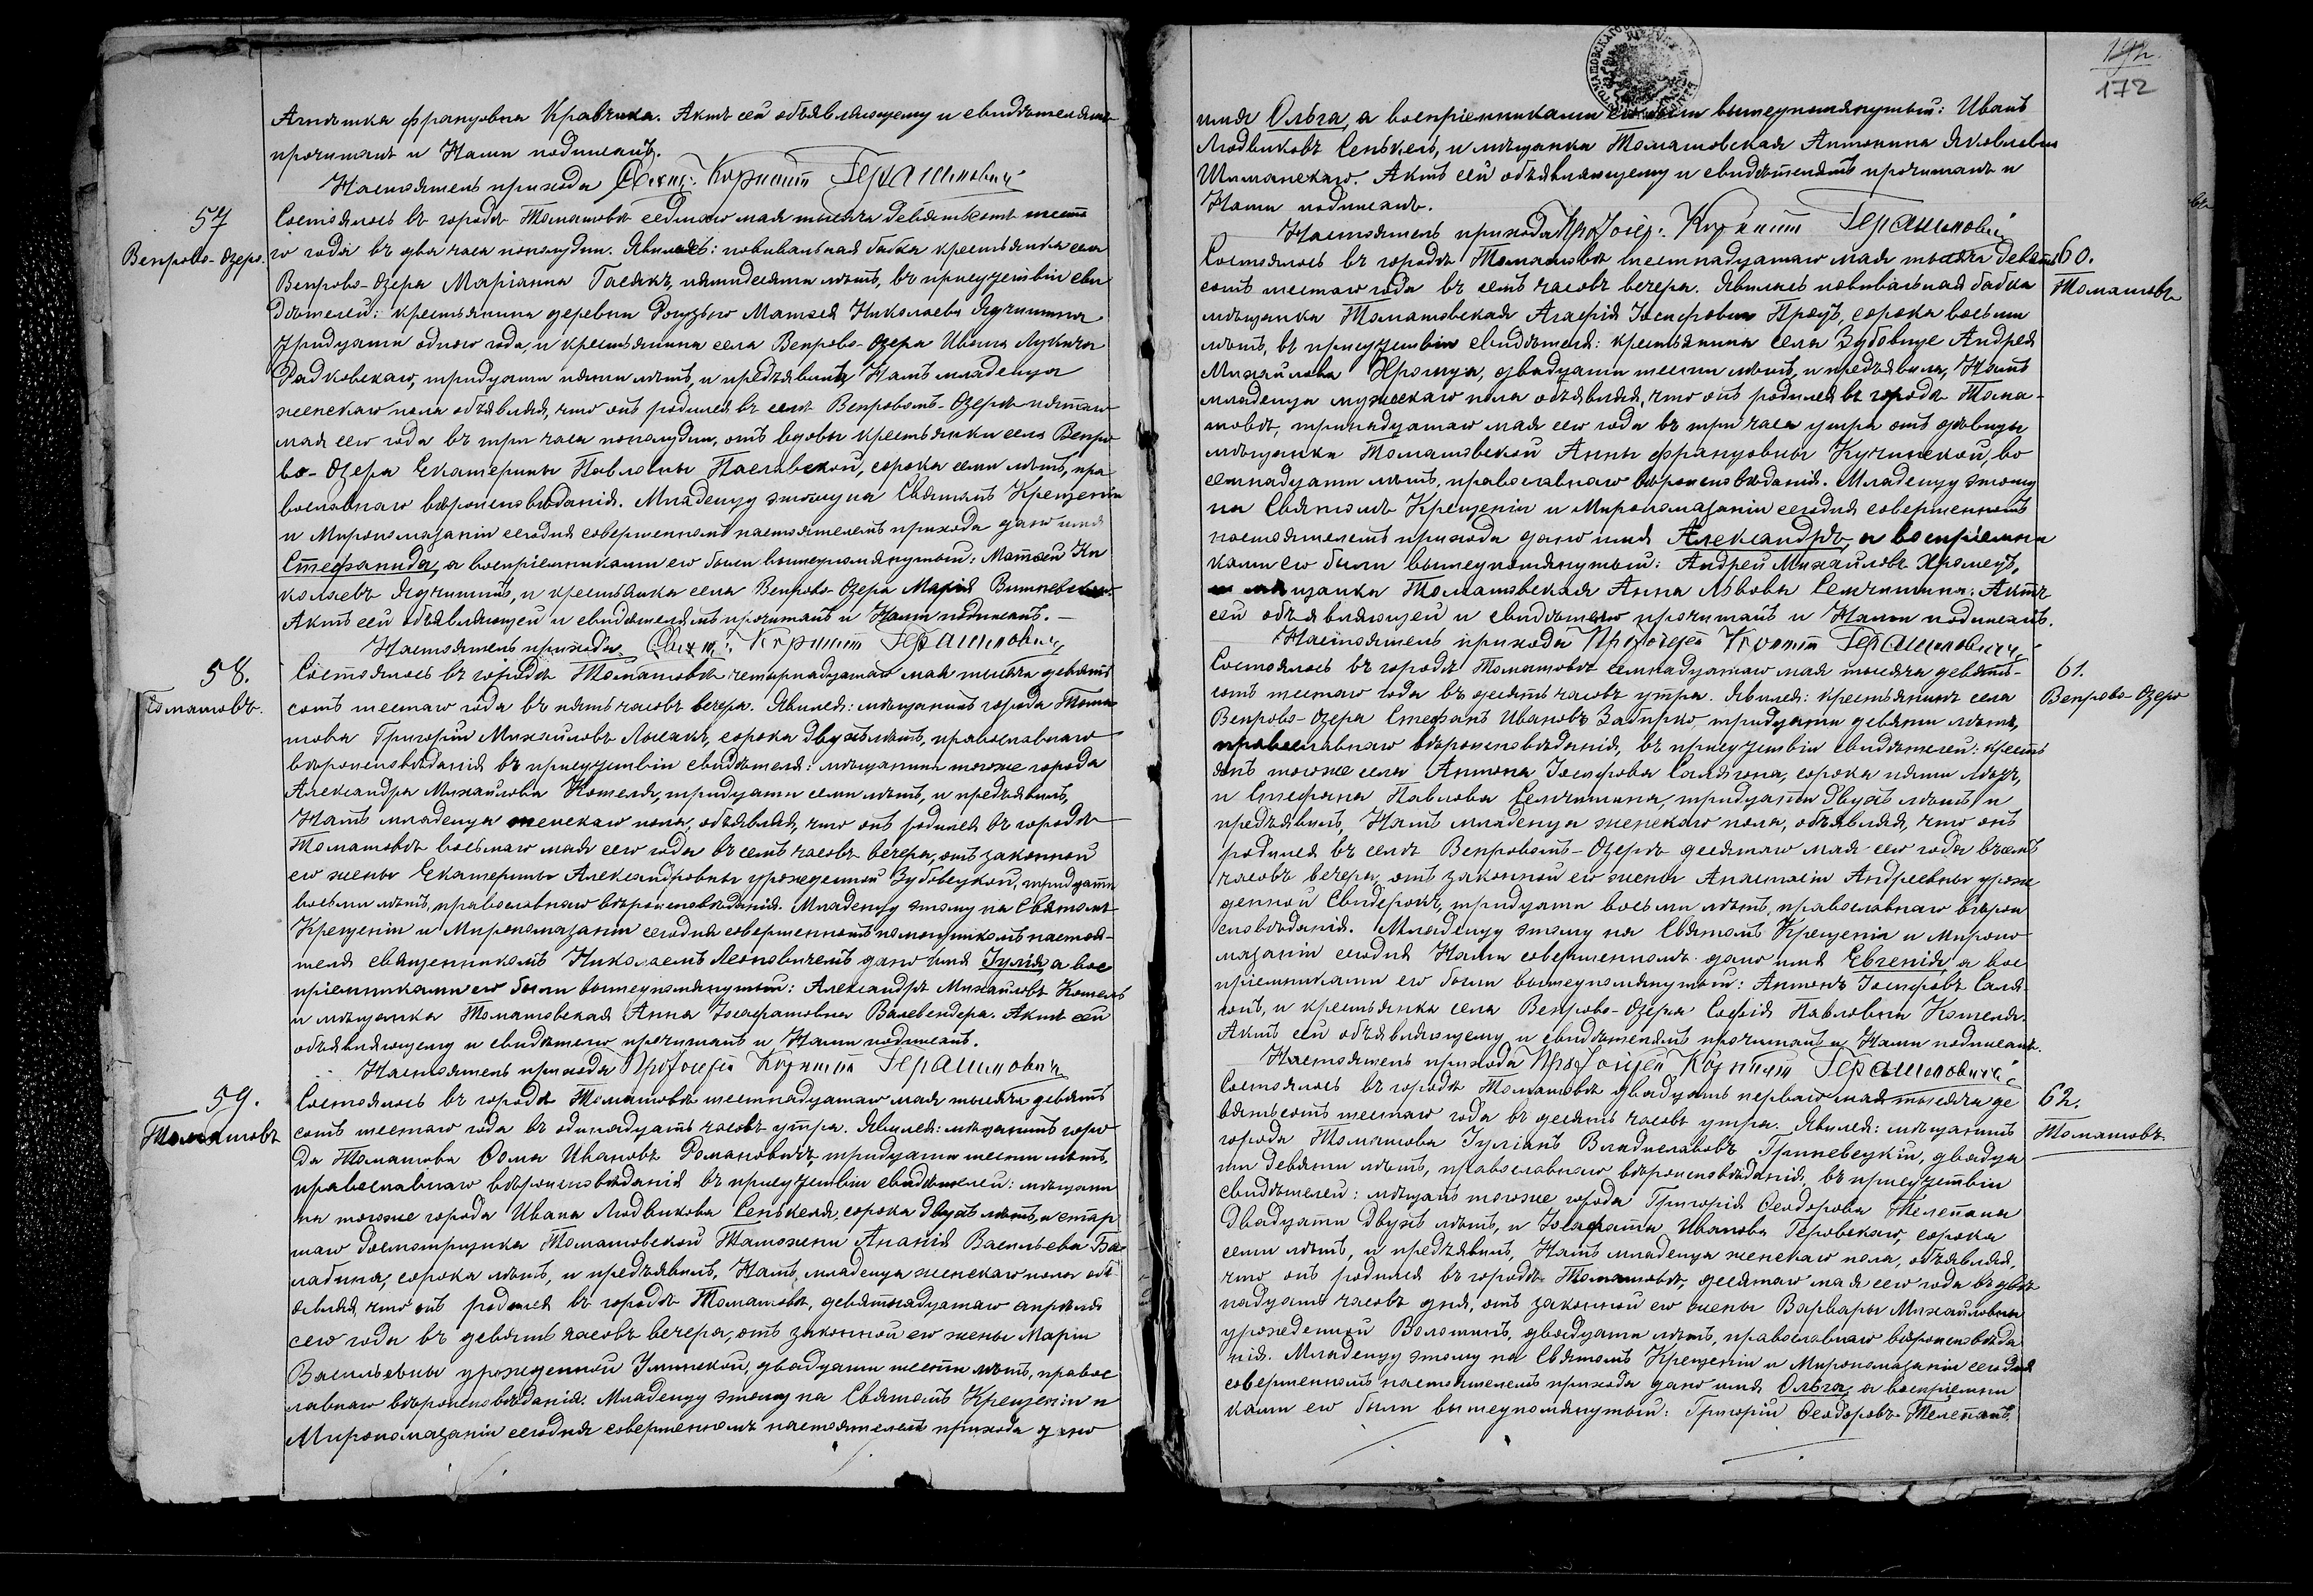 Агнѣшка Францовна Кравчика. Актъ сей объявляющему и свидѣтелямъ
прочитанъ и Нами подписанъ.
Настоятель прихода Свящ. Корнилій Герасимовичъ
57
Вепрово-Озеро.
Состоялось въ городѣ Томашовѣ седьмаго мая тысяча девятьсотъ шеста
го года въ два часа пополудни. Явилась: повивальная бабка крестьянка села
Вепрово-Озера Маріанна Гасякъ, пятидесяти лѣтъ, въ присутствіи сви
дѣтелей: крестьянина деревни Рогузьно Матѳея Николаева Ядчишина
тридцати одного года, и крестьянина села Вепрово-Озера Ивана Лукича
Радковскаго, тридцати пяти лѣтъ, и предъявила Намъ младенца
женскаго пола объявляя, что онъ родился въ селѣ Вепровомъ-Озерѣ пятаго
мая сего года въ три часа пополудни, отъ вдовы крестьянки села Вепро
во-Озера Екатерины Павловны Паславской, сорока семи лѣтъ, пра
вославнаго вѣроисповѣданія. Младенцу этому на Святомъ Крещеніи
и Миропомазаніи сегодня совершенномъ настоятелемъ прихода дано имя
Стефанида, а воспріемниками его были вышеупомянутый: Матѳей Ни
колаевъ Ядчишинъ, и крестьянка села Вепрово-Озера Марія Вишневская.
Актъ сей объявляющей и свидѣтелямъ прочитанъ и Нами подписанъ.—
Настоятель прихода Свящ. Корнилій Герасимовичъ
58.
Томашовъ.
Состоялось въ городѣ Томашовѣ четырнадцатаго мая тысяча девять
сотъ шестаго года въ пять часовъ вечера. Явился: мѣщанинъ города Тома
шова Григорій Михайловъ Лысакъ, сорока двухъ лѣтъ, православнаго
вѣроисповѣданія въ присутствіи свидѣтеля: мѣщанина тогоже города
Александра Михайлова Котеля, тридцати семи лѣтъ, и предъявилъ,
Намъ младенца женскаго пола, объявляя, что онъ родился въ городѣ
Томашовѣ восьмаго мая сего года въ семь часовъ вечера, отъ законной
его жены Екатерины Александровны урожденной Зубовецкой, тридцати
восьми лѣтъ, православнаго вѣроисповѣданія. Младенцу этому на Святомъ
Крещеніи и Миропомазаніи сегодня совершенномъ помощникомъ настоя-
теля священникомъ Николаемъ Леоновичемъ дано имя Іулія, а вос
пріемниками его были вышеупомянутый: Александръ Михайловъ Котель
и мѣщанка Томашовская Анна Іосафатовна Валевендера. Актъ сей
объявляющему и свидѣтелю прочитанъ и Нами подписанъ.
Настоятель прихода Протоіерей Корнилій Герасимовичъ
59.
Томашовъ
Состоялось въ городѣ Томашовѣ шестнадцатаго мая тысяча девять
сотъ шестаго года въ одинадцать часовъ утра. Явился: мѣщанинъ горо
да Томашова Ѳома Ивановъ Романовичъ, тридцати шести лѣтъ,
православнаго вѣроисповѣданія въ присутствіи свидѣтелей: мѣщани
на тогоже города Ивана Людвикова Сенькеля, сорока двухъ лѣтъ, и стар
шаго досмотрщика Томашовской Таможни Ананія Васильева Ба
лабина, сорока лѣтъ, и предъявилъ, Намъ, младенца женскаго пола объ
являя что онъ родился въ городѣ Томашовѣ, девятнадцатаго апрѣля
сего года въ девять часовъ вечера, отъ законной его жены Маріи
Васильевны урожденной Улинской, двадцати шести лѣтъ, правос
лавнаго вѣроисповѣданія. Младенцу этому на Святомъ Крещеніи и
Миропомазаніи сегодня совершенномъ настоятелемъ прихода дано
172
имя Ольга, а воспріемниками его были вышеупомянутый: Иванъ
Людвиковъ Сенькель, и мѣщанка Томашовская Антонина Яковлевна
Шиманскаго. Актъ сей объявляющему и свидѣтелямъ прочитанъ и
Нами подписанъ.
Настоятель прихода Протоіер. Корнилій Герасимовичъ
60.
Томашовъ
Состоялось въ городѣ Томашовѣ шестнадцатаго мая тысяча девять
сотъ шестаго года въ семь часовъ вечера. Явилась повивальная бабка
мѣщанка Томашовская Агафія Іосифовна Процъ, сорока восьми
лѣтъ, въ присутствіи свидѣтеля: крестьянина села Зубовице Андрея
Михайлова Хромца, двадцати шести лѣтъ, и предъявила, Намъ
младенца мужескаго пола объявляя, что онъ родился въ городѣ Тома-
шовѣ, тринадцатаго мая сего года въ три часа утра отъ дѣвицы
мѣщанки Томашовской Анны Францовны Кучинской, во
семнадцати лѣтъ, православнаго вѣроисповѣданія. Младенцу этому
на Святомъ Крещеніи и Миропомазаніи сегодня совершенномъ
настоятелемъ прихода дано имя Александръ, а воспріемни
ками его были вышеупомянутый: Андрей Михайловъ Хромецъ,
и мѣщанка Томашовская Анна Львова Семчишина. Актъ
сей объявляющей и свидѣтелю прочитанъ и Нами подписанъ.
Настоятель прихода Протоіерей Корнилій Герасимовичъ
61.
Вепрово-Озеро
Состоялось въ городѣ Томашовѣ семнадцатаго мая тысяча девять-
сотъ шестаго года въ десять часовъ утра. Явился: крестьянинъ села
Вепрово-Озера Стефанъ Ивановъ Забирко, тридцати девяти лѣтъ,
православнаго вѣроисповѣданія, въ присутствіи свидѣтелей: кресть
янъ тогоже села Антона Іосифова Салягона, сорока пяти лѣтъ,
и Стефана Павлова Семчишина, тридцати двухъ лѣтъ и
предъявилъ, Намъ младенца женскаго пола, объявляя, что онъ
родился въ селѣ Вепровомъ-Озерѣ десятаго мая сего года въ семь
часовъ вечера, отъ законной его жены Анастасіи Андреевны урож
денной Свидеронъ, тридцати восьми лѣтъ, православнаго вѣрои
сповѣданія. Младенцу этому на Святомъ Крещеніи и Миропо
мазаніи сегодня Нами совершенномъ дано имя Евгенія, а вос
пріемниками его были вышеупомянутый: Антонъ Іосифовъ Саля-
гонъ, и крестьянка села Вепрово-Озера Софія Павловна Кателя.
Актъ сей объявляющему и свидѣтелямъ прочитанъ и Нами подписанъ.
Настоятель прихода Протоіерей Корнилій Герасимовичъ
62.
Томашовъ
Состоялось въ городѣ Томашовѣ двадцать перваго мая тысяча де
вятьсотъ шестаго года въ десять часовъ утра. Явился: мѣщанинъ
города Томашова Іуліанъ Владиславовъ Гриневецкій, двадца
ти девяти лѣтъ, православнаго вѣроисповѣданія, въ присутствіи
свидѣтелей: мѣщанъ тогоже города Григорія Ѳеодорова Телепана
двадцати двухъ лѣтъ, и Іосафата Иванова Геровскаго, сорока
семи лѣтъ, и предъявилъ, Намъ младенца женскаго пола, объявляя,
что онъ родился въ городѣ Томашовѣ, десятаго мая сего года въ двѣ
надцать часовъ дня, отъ законной его жены Варвары Михайловны
урожденной Волошинъ, двадцати лѣтъ, православнаго вѣроисповѣда
нія. Младенцу этому на Святомъ Крещеніи и Миропомазаніи сегодня
совершенномъ настоятелемъ прихода дано имя Ольга, а воспріемни
ками его были вышеупомянутый: Григорій Ѳеодоровъ Телепанъ,